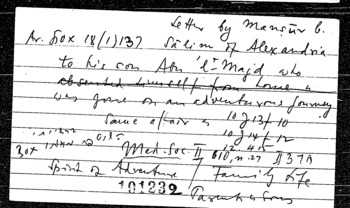 Letter by Manṣūr b.
Ar. Box 18(1)137 Sālim of Alexandria
to his son Abu 'l-Majd who
absented himself from home &
was gone on an adventurous journey
Same affair as 10 J 13 f 10
10 J 14 f 12
12, 415
Med. Soc. II 610, n. 27 II 379
Spirit of Adventure / Family Life
101232 Parents & Sons